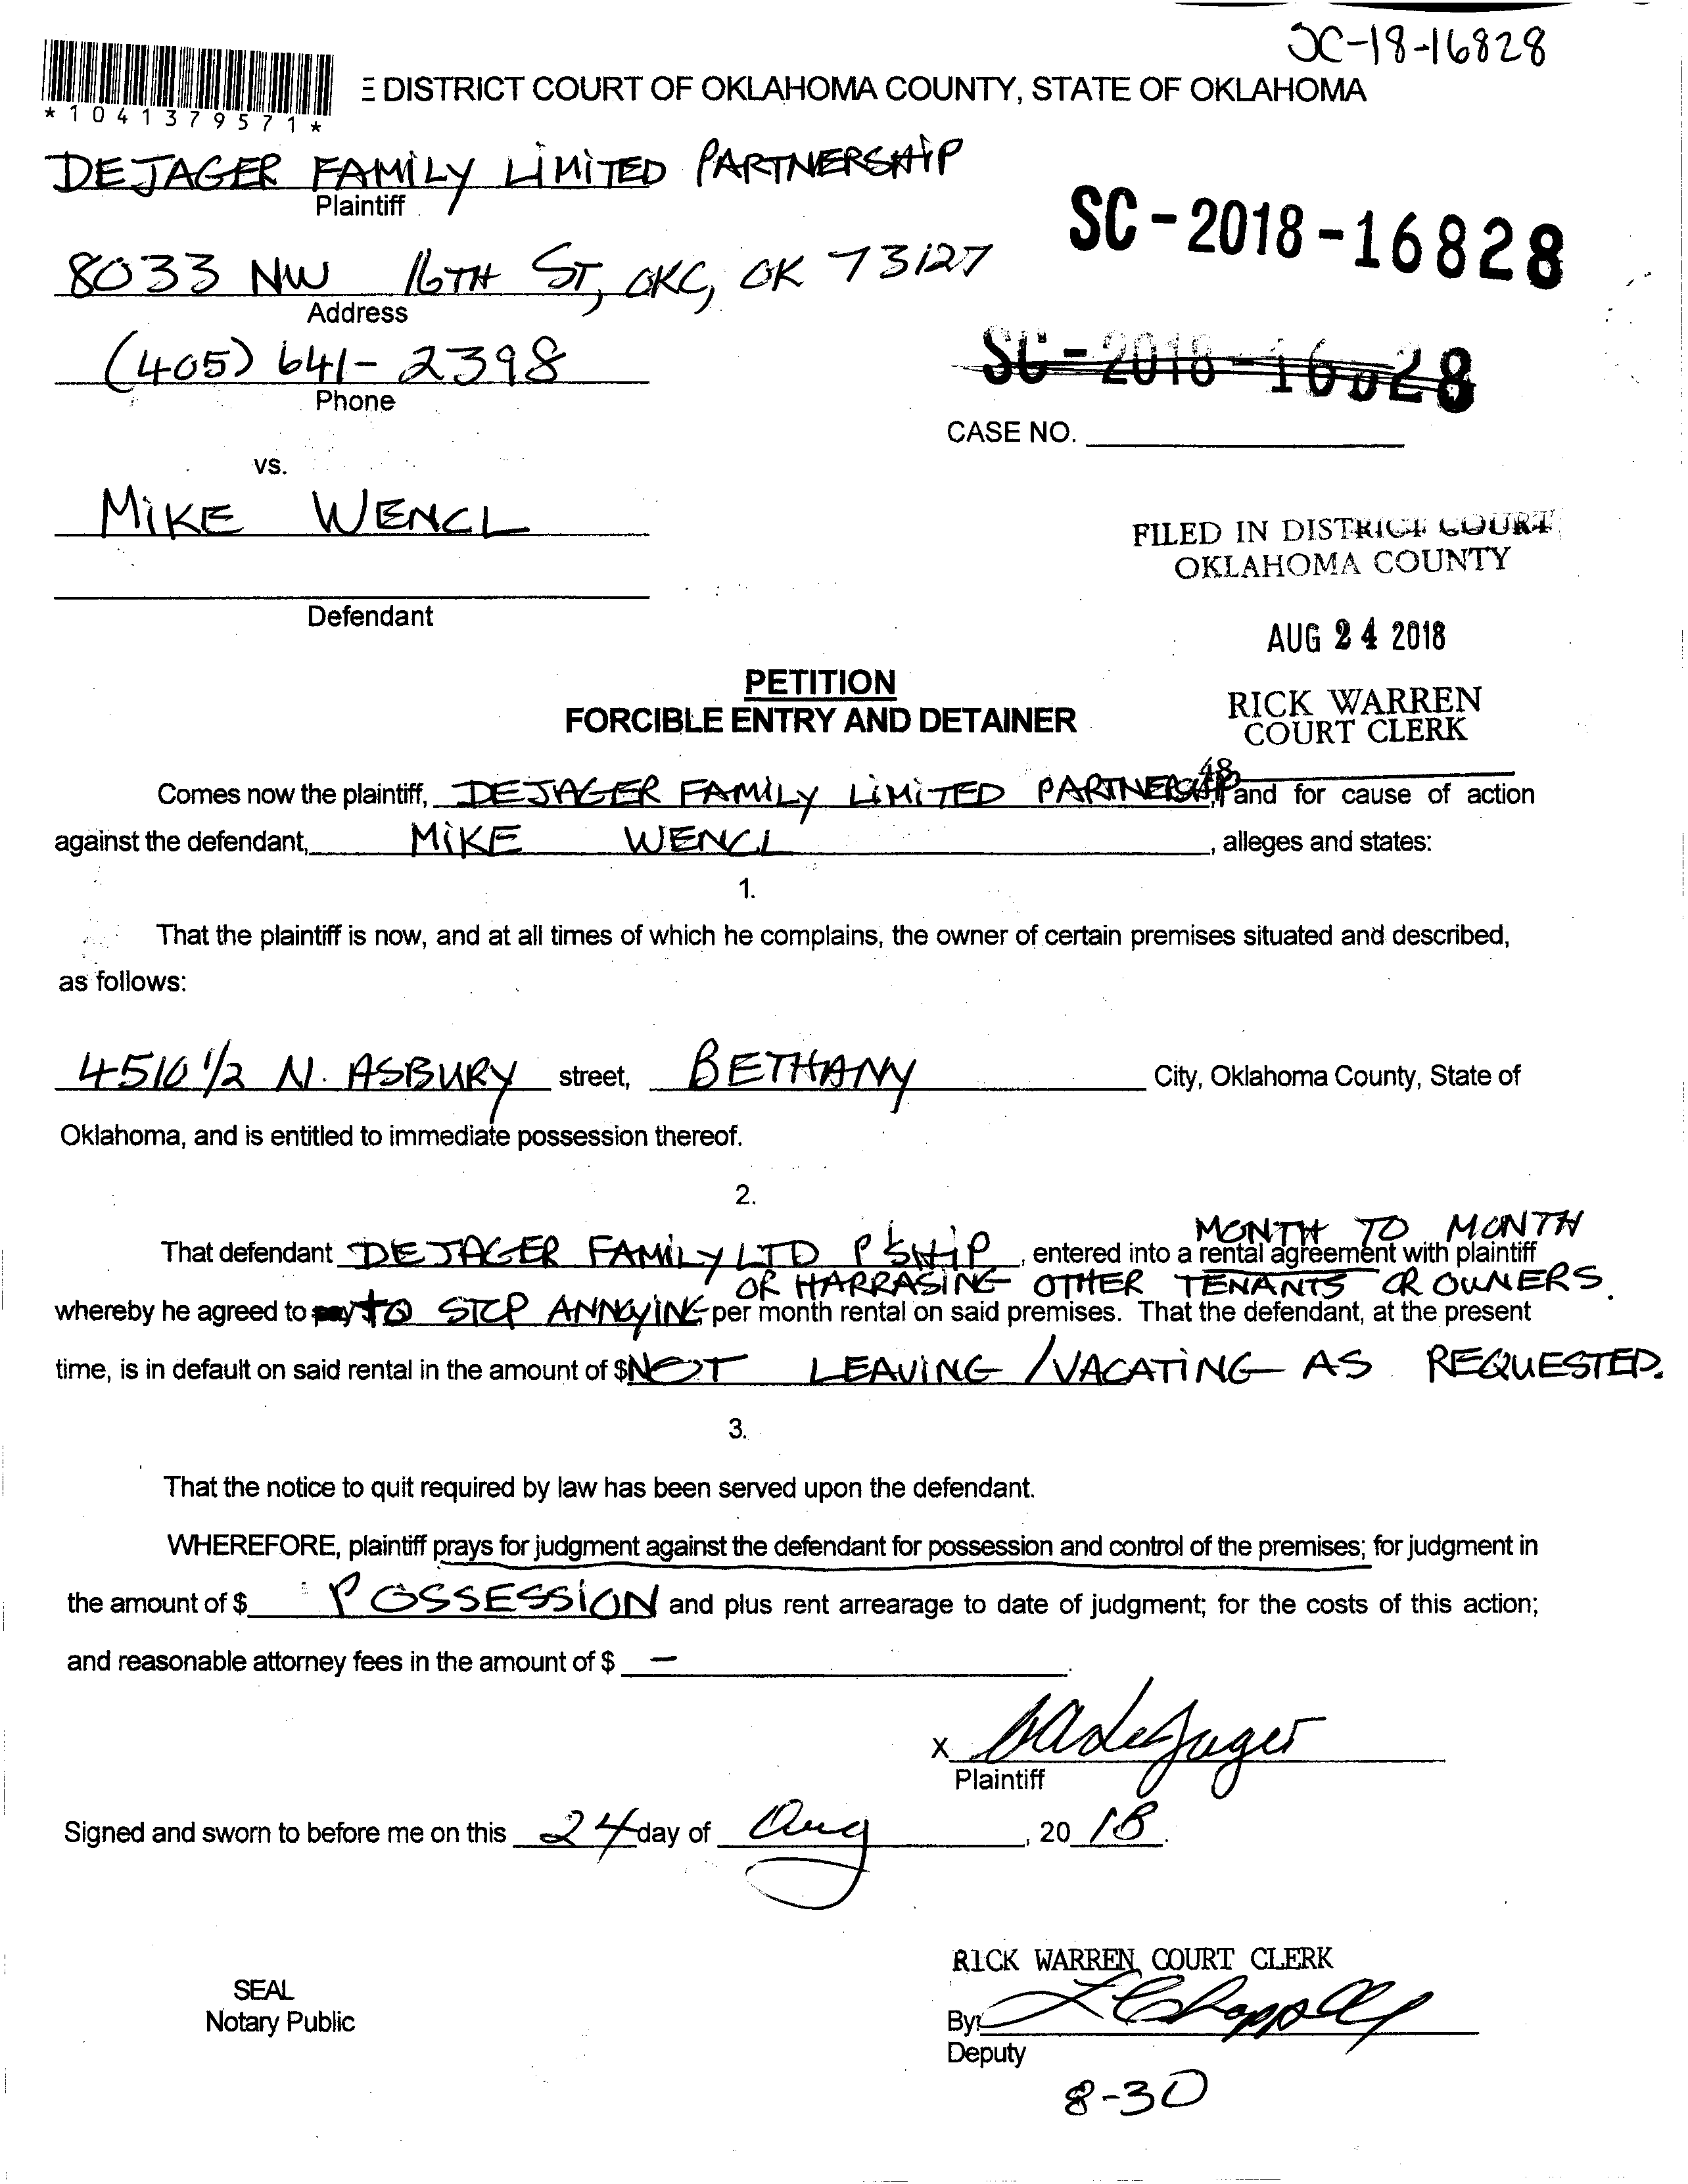 SC-18-16828
E DISTRICT COURT OF OKLAHOMA COUNTY, STATE OF OKLAHOMA
*1041379571*
DEJAGER FAMILY LIMITED PARTNERSHIP
Plaintiff
SC-2018-16828
8033 NW 16TH ST, OKC, OK 73127
Address
(405) 641-2398
Phone
SC-2018-16828
CASE NO.
vs.
MIKE WENCL
FILED IN DISTRICT COURT
OKLAHOMA COUNTY
Defendant
AUG 24 2018
PETITION
FORCIBLE ENTRY AND DETAINER
RICK WARREN
COURT CLERK
48
Comes now the plaintiff, DEJAGER FAMILY LIMITED PARTNERSHIP, and for cause of action
against the defendant, MIKE WENCL, alleges and states:
1.
That the plaintiff is now, and at all times of which he complains, the owner of certain premises situated and described,
as follows:
4510 1/2 N. ASBURY street, BETHANY City, Oklahoma County, State of
Oklahoma, and is entitled to immediate possession thereof.
2.
MONTH TO MONTH
That defendant DEJAGER FAMILY LTD P'SHIP, entered into a rental agreement with plaintiff
OR HARRASING OTHER TENANTS OR OWNERS.
whereby he agreed to pay TO STOP ANNOYING per month rental on said premises. That the defendant, at the present
time, is in default on said rental in the amount of $NOT LEAVING / VACATING AS REQUESTED.
3.
That the notice to quit required by law has been served upon the defendant.
WHEREFORE, plaintiff prays for judgment against the defendant for possession and control of the premises; for judgment in
the amount of $ POSSESSION and plus rent arrearage to date of judgment; for the costs of this action;
and reasonable attorney fees in the amount of $ —
X DeJager
Plaintiff
Signed and sworn to before me on this 24 day of Aug, 2018.
RICK WARREN COURT CLERK
SEAL
Notary Public
By: L Chappell
Deputy
8-30